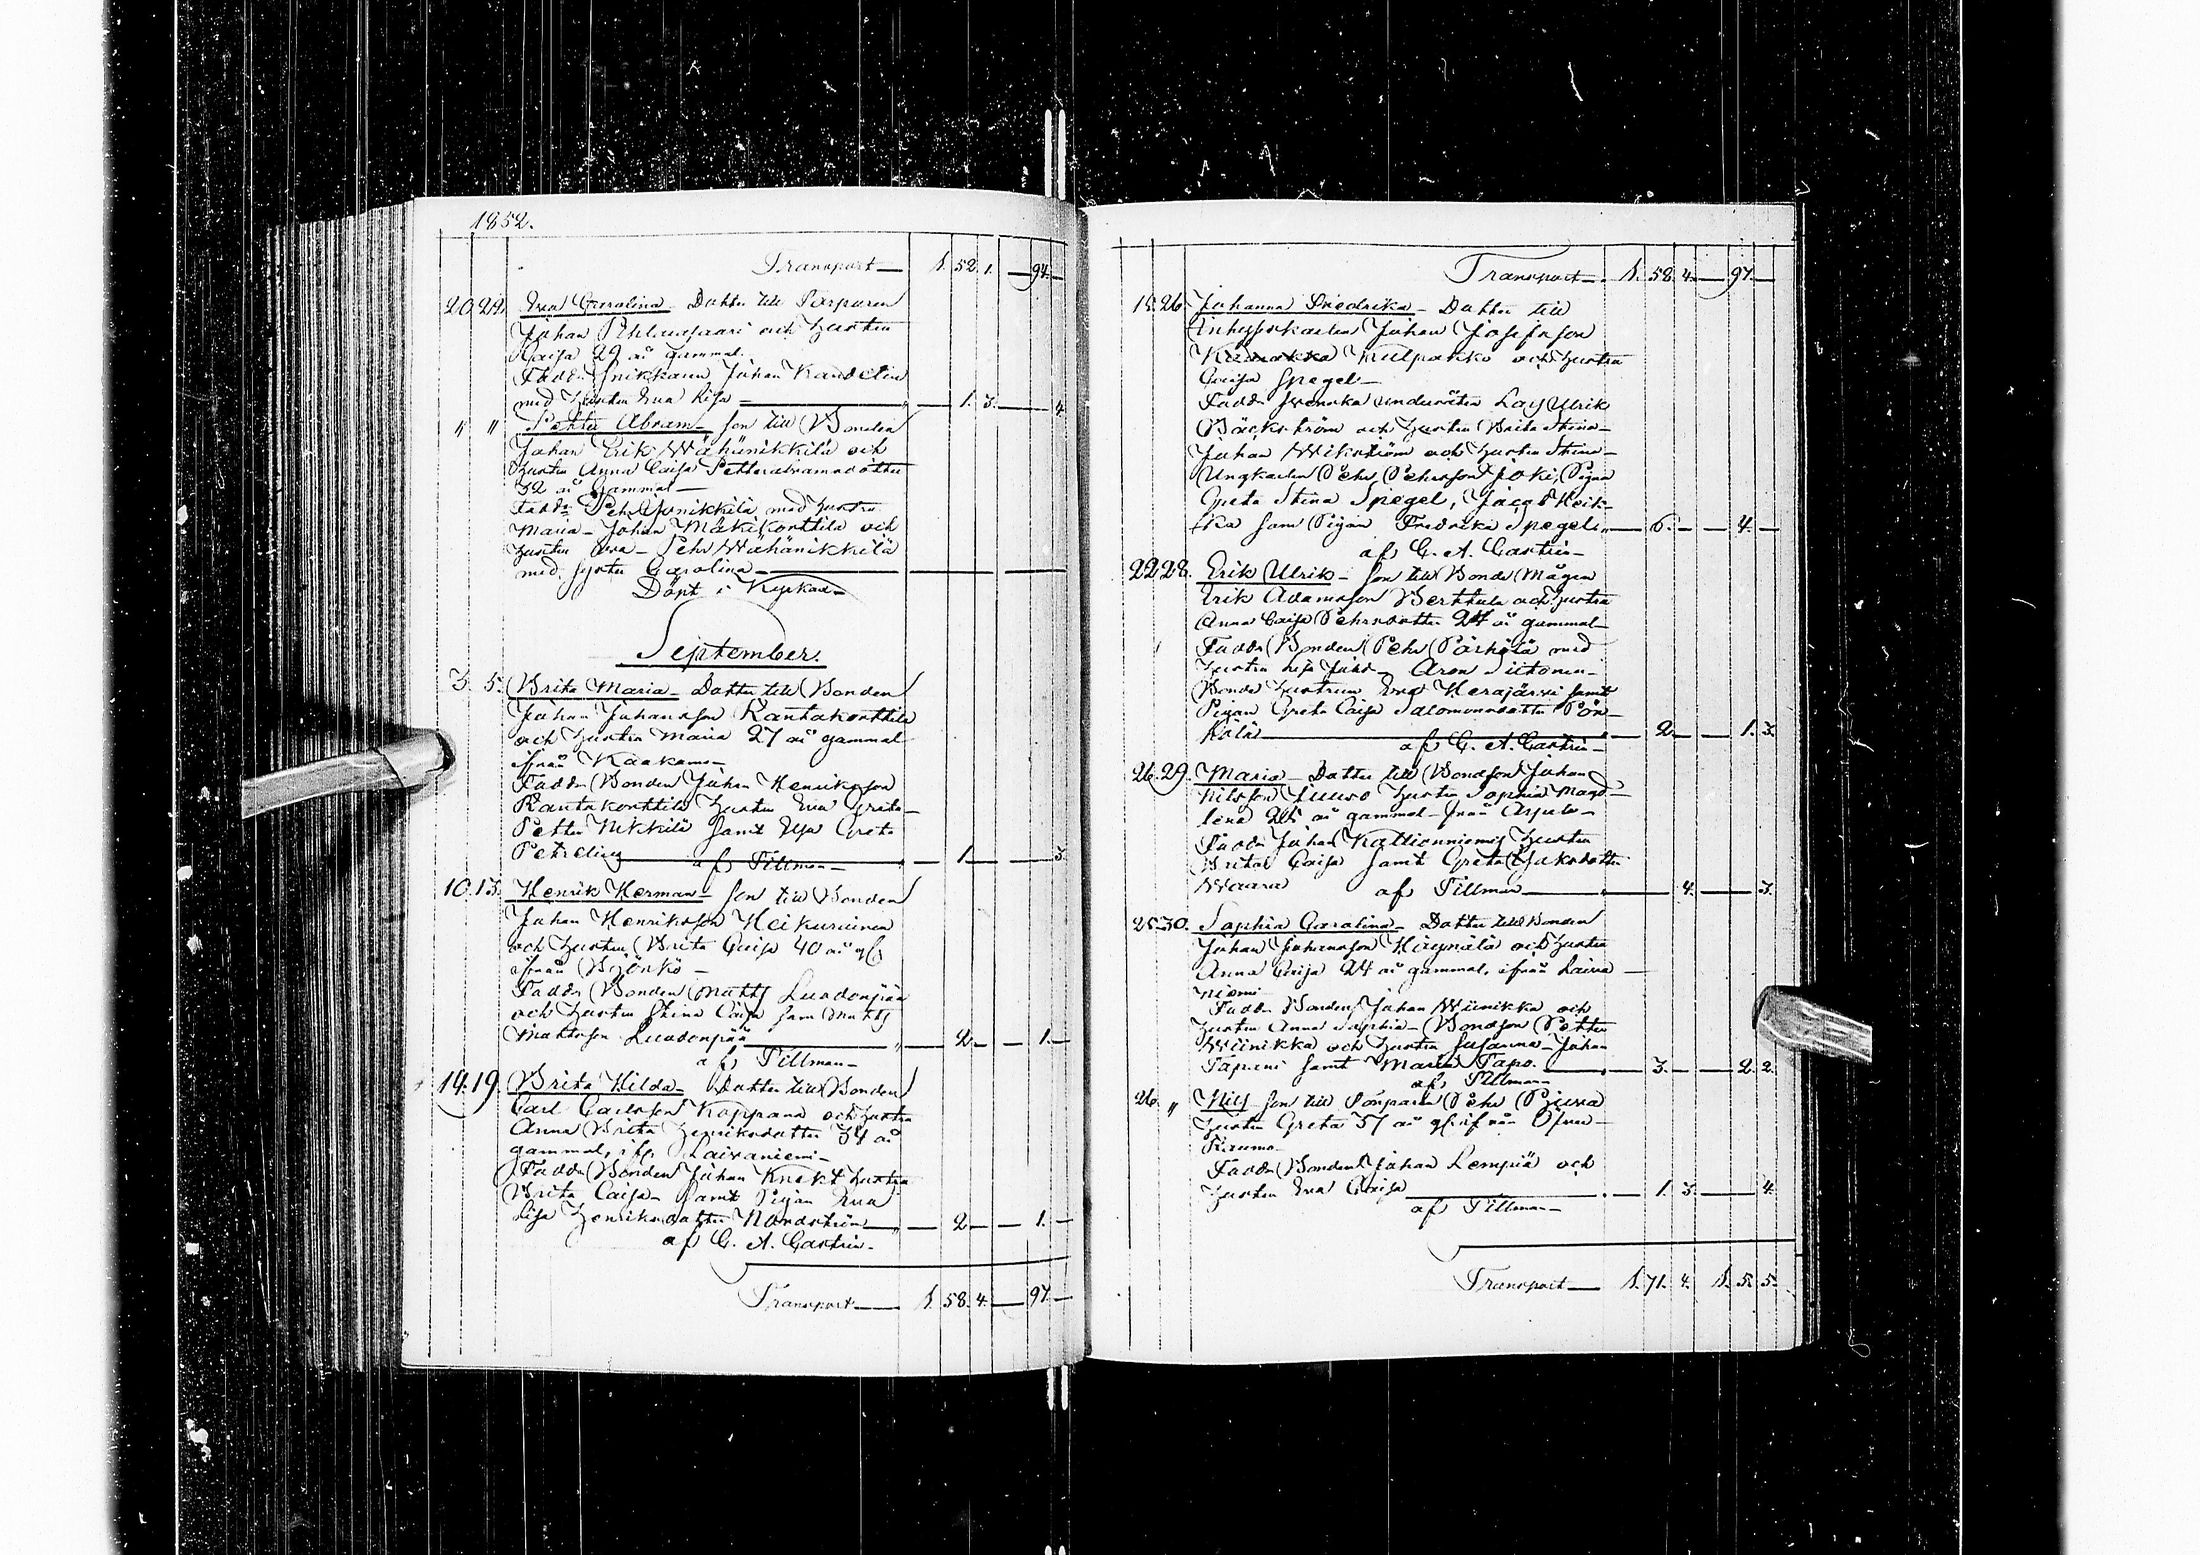 1852.
Transport — 1. 52. 1. — 94. —
20. 24. Eva Carolina — Dotter till
Johan och Hustru
Caisa 29 år gammal.
Fadd: Snikkaren Johan Kandelin
med Hustru Eva Lisa — 1. 3. — 4.
" " Petter Abram — son till Bonden
Johan Erik Wähänikkilä och
Hustru Anna Caisa Pettersabramsdotter
32 år Gammal —
Fadd: Pehr med Hustru
Maria — Johan Mäkikorttila och
Hustru Eva — Pehr Wähänikkilä
med syster Carolina —
Döpt i Kyrkan —
September.
3. 5. Brita Maria — Dotter till Bonden
Johan Johansson Rantakorttila
och Hustru Maria 27 år gammal
ifrån Kaakamo —
Fadd: Bonden Johan Henriksson
Rantakorttila Hustru Eva Greta —
Petter Nikkilä samt Greta
— 1. — 3.
af Tillman —
10. 13. Henrik Herman — son till Bonden
Johan Henriksson Heikurinen
och Hustru Brita Caisa 40 år gl.
ifrån Björkö —
Fadd: Bonden Matts Luodonpää
och Hustru Stina Caisa samt Matts
Mattsson Luodonpää — 2. — 1. —
af Tillman —
14. 19. Brita Hilda — Dotter till Bonden
Carl Carlsson Koppana och Hustru
Anna Brita Henriksdotter 34 år
gammal, ifr. Laivaniemi —
Fadd: Bonden Johan Knekt Hustru
Brita Caisa — samt Pigan Eva
Lisa Henriksdotter Nordström — 2. — 1. —
af C. A. Castrén —
Transport — 1. 58. 4. — 97. —
Transport — 1. 58. 4. — 97. —
15. 26. Johanna Fredrika — Dotter till
Inhysekarlen Johan Josefsson
Kulpakko och Hustru
Caisa Spegel —
Fadd: Lars Ulrik
Bäckström och Hustru Brita Stina —
Johan Wikström och Hustru Stina —
Ungkarlen Pehr Pehrsson Joki, Pigan
Greta Stina Spegel, Jacob Heik-
ka samt Pigan Fredrika Spegel — 6. — 4. —
af C. A. Castrén —
22. 28. Erik Ulrik — son till Bonde Mågen
Erik Adamsson Berttula och Hustru
Anna Caisa Pehrsdotter 24 år gammal —
Fadd: Bonden Pehr med
Hustru Lisa — Aron —
Bonde Hustrun Eva Herajärvi samt
Pigan Greta Caisa Salomonsdotter Pör-
hölä — 2. — 1. 3.
af C. A. Castrén —
26. 29. Maria — Dotter till Bondson Johan
Nilsson Hustru Sophia Magd-
lena år gammal — från —
Fadd: Johan Kallionniemi Hustru
Brita Caisa samt Greta Jakobsdotter
Waara — 4. — 3.
af Tillman —
25. 30. Sophia Carolina — Dotter till Bonden
Johan Johansson och Hustru
Anna Caisa 24 år gammal, ifrån Laiva —
niemi
Fadd: Bonden Johan Wiinikka och
Hustru Anna Sophia — Bondson Petter
Wiinikka och Hustru Susanna — Johan
samt Maria Tapo. — 3. — 2. 2.
af Tillman —
26. " Nils son till Pehr
Hustru Greta 37 år gl. ifrån Öfver —
Raumo —
Fadd: Bonden Johan Lempiä och
Hustru Eva Caisa — 1. 3. — 4.
af Tillman —
Transport — 1. 71. 4. 1. 5. 5.